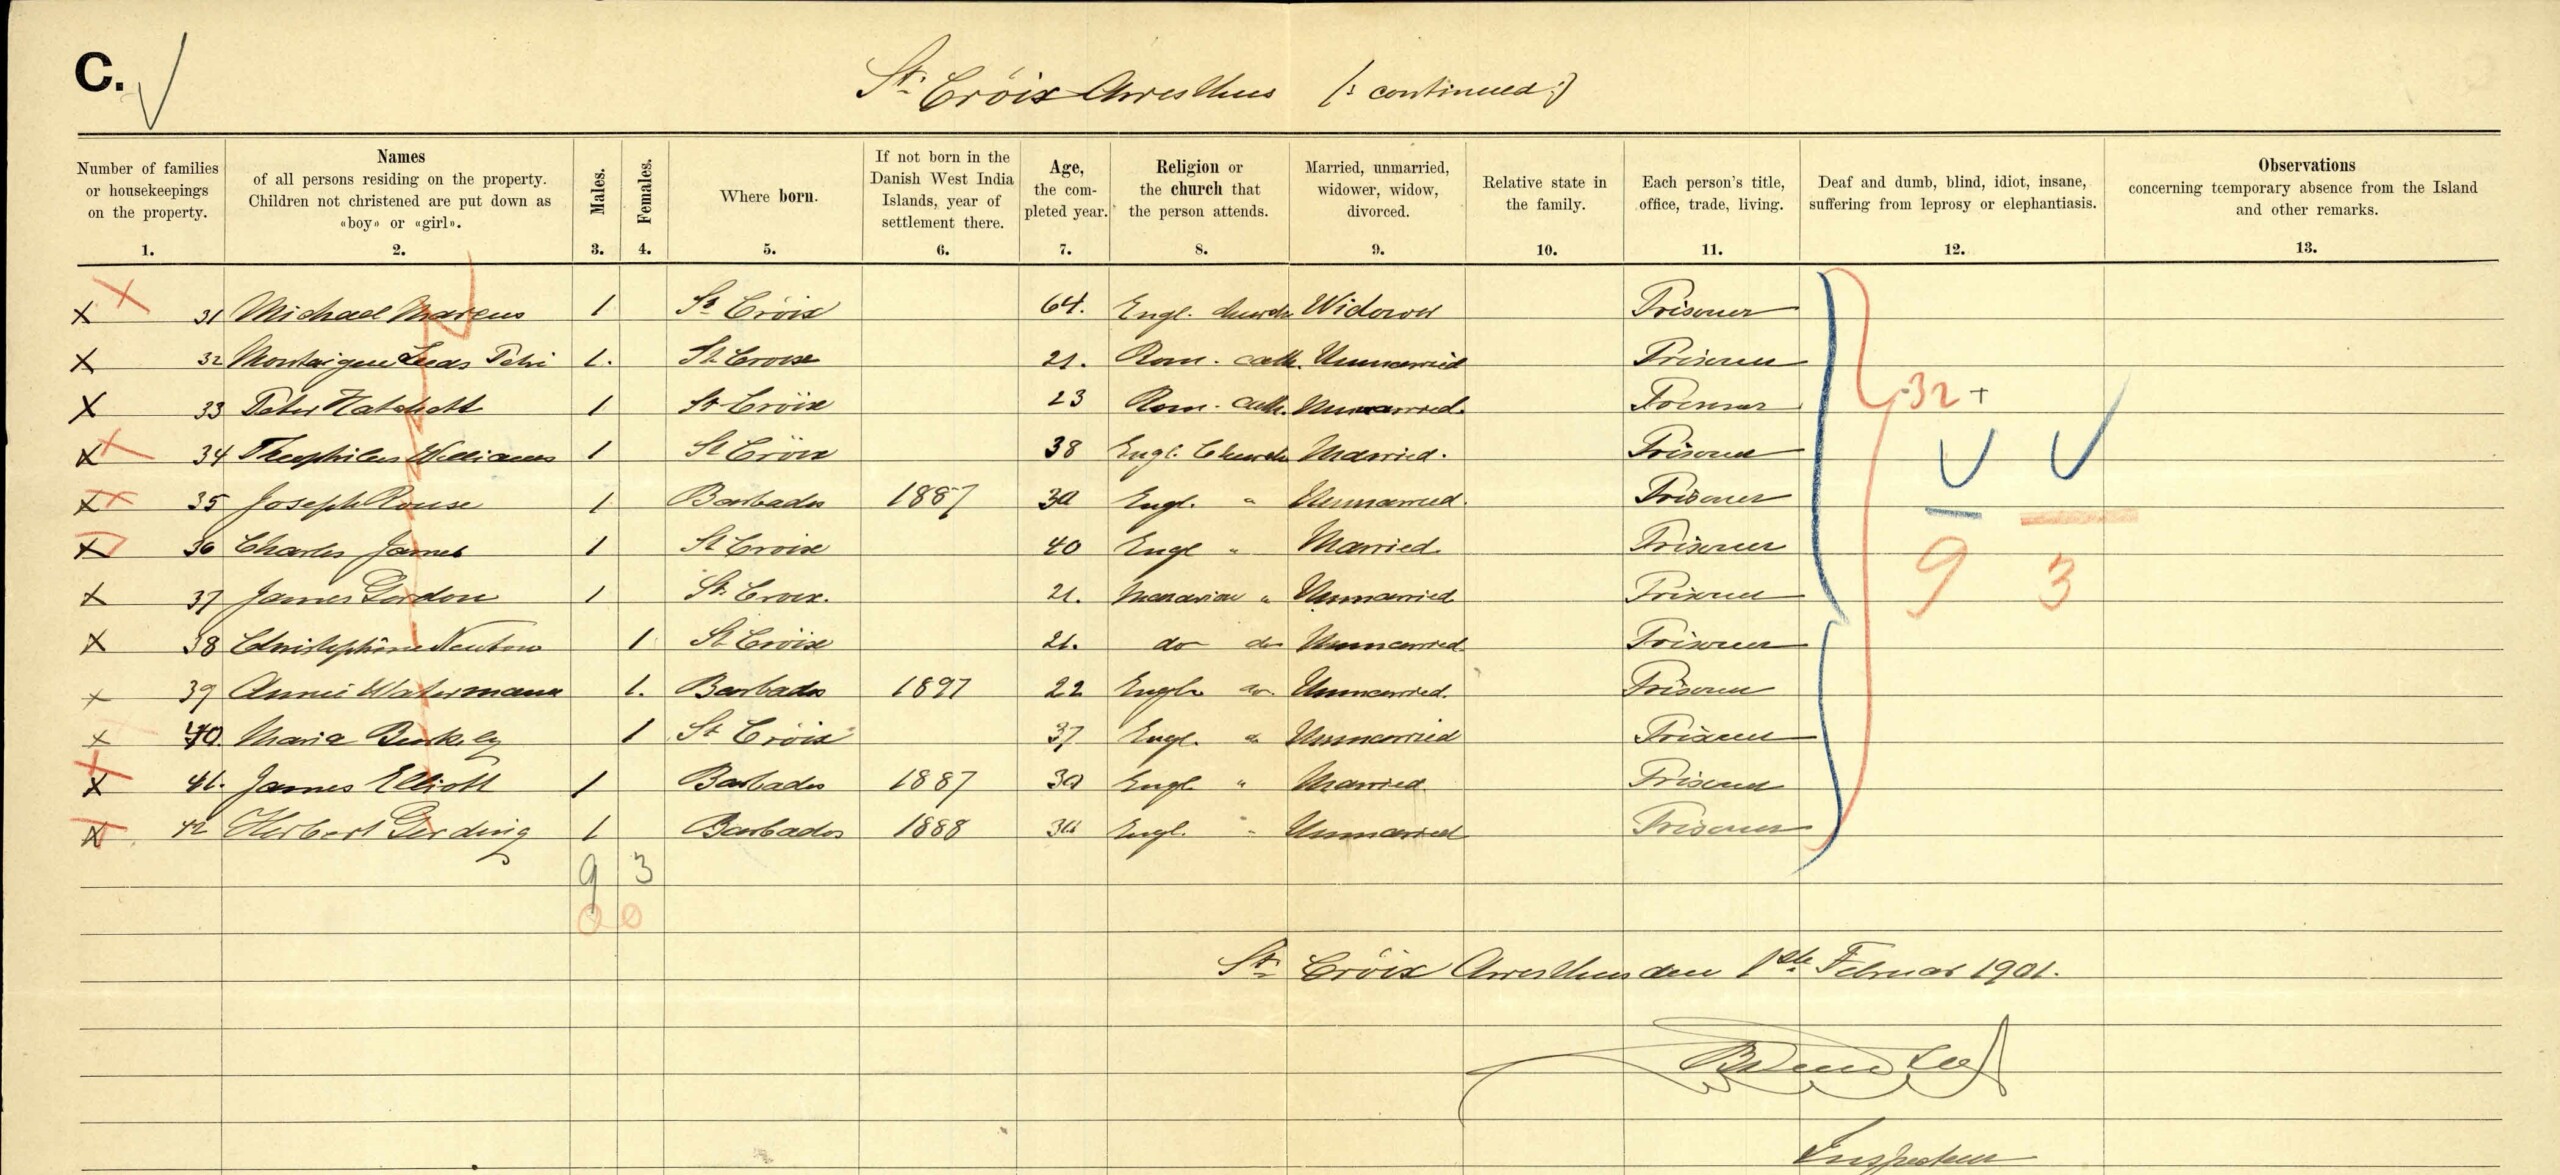 C.
St. Cröix Arresthus (: continued :)
Number of families or housekeepings on the property. 1.
Names of all persons residing on the property. Children not christened are put down as «boy» or «girl». 2.
Males. 3.
Females. 4.
Where born. 5.
If not born in the Danish West India Islands, year of settlement there. 6.
Age, the completed year. 7.
Religion or the church that the person attends. 8.
Married, unmarried, widower, widow, divorced. 9.
Relative state in the family. 10.
Each person's title, office, trade, living. 11.
Deaf and dumb, blind, idiot, insane, suffering from leprosy or elephantiasis. 12.
Observations concerning tcemporary absence from the Island and other remarks. 13.
x 31 Michael Marcus 1 St Cröix 64. Engl. church Widower Prisoner
x 32 Montaigue 1. St Croix 21. Rom. cath. Unmarried Prisoner
x 33 Peter 1 St Cröix 23 Rom. cath. Unmarried. Prisoner
x 34 Theophilus Williams 1 St Cröix 38 Engl. Church Married. Prisoner
x 35 Joseph Rouse 1 Barbados 1887 Engl. " Unmarried. Prisoner
x 36 Charles James 1 St Croix 40 Engl " Married. Prisoner
x 37 James Gordon 1 St. Croix. 21. Moravian " Unmarried Prisoner
x 38 Newton 1 St Cröix 21. do do Unmarried Prisoner
x 39 Annie Watermann 1. Barbados 1897 22 Engl. do Unmarried. Prisoner
x 40. Maria 1 St Cröix 37 Engl. Unmarried Prisoner
x 41. James Elliott 1 Barbados 1887 Engl. " Married Prisoner
x 42 Herbert Gerding 1 Barbados 1888 Engl. " Unmarried Prisoner
32 +
9 3
9 3
0 0
St. Cröix Arresthus den 1ste Februar 1901.
Inspecteur